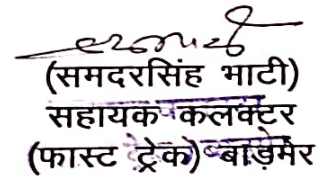 (समदरसिंह भाटी)
सहायक कलक्टर
(फास्ट ट्रेक) बाड़मेर